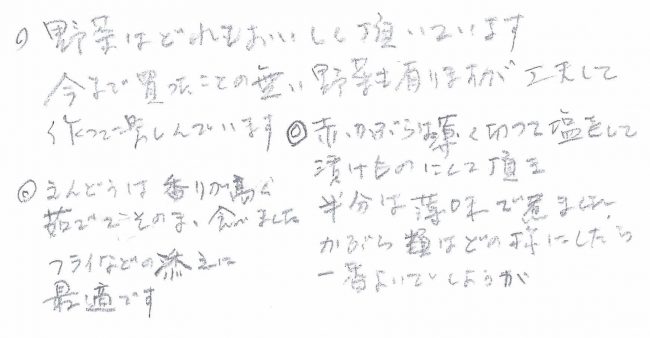 ○ 野菜はどれもおいしく頂いています
今まで買ったことの無い野菜も有りますが工夫して
作って楽しんでいます
◎赤いかぶらは薄く切って塩をして
漬けものにして頂き
半分は薄味で煮ました
かぶら はどの様にしたら
一番よいでしょうか
◎えんどうは香りが高く
茹でてそのまま食べました
フライなどの添えに
最適です